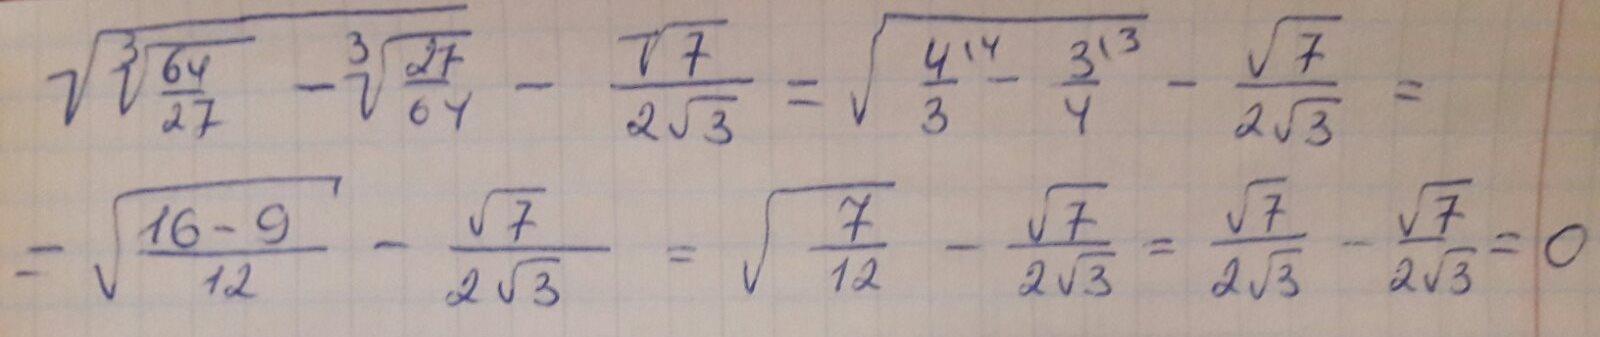 √(∛(64/27) - ∛(27/64)) - √7/(2√3) = √(4/3 ⁽⁴ - 3/4 ⁽³) - √7/(2√3) =
= √((16-9)/12) - √7/(2√3) = √(7/12) - √7/(2√3) = √7/(2√3) - √7/(2√3) = 0